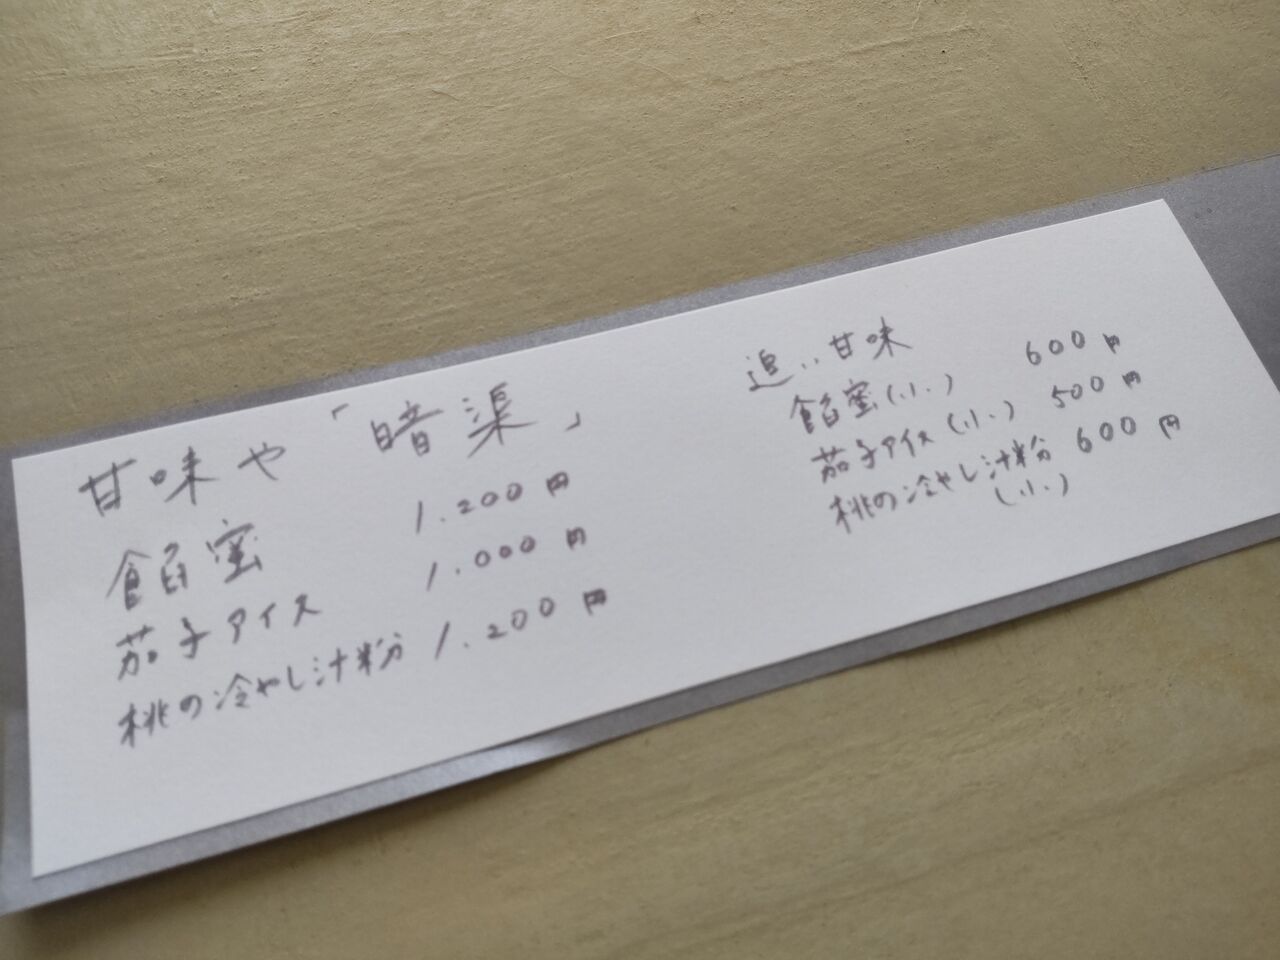 甘味や「暗渠」
餡蜜 1.200円
茄子アイス 1.000円
桃の冷やし汁粉 1.200円
追い甘味
餡蜜(小) 600円
茄子アイス(小) 500円
桃の冷やし汁粉 600円
(小)